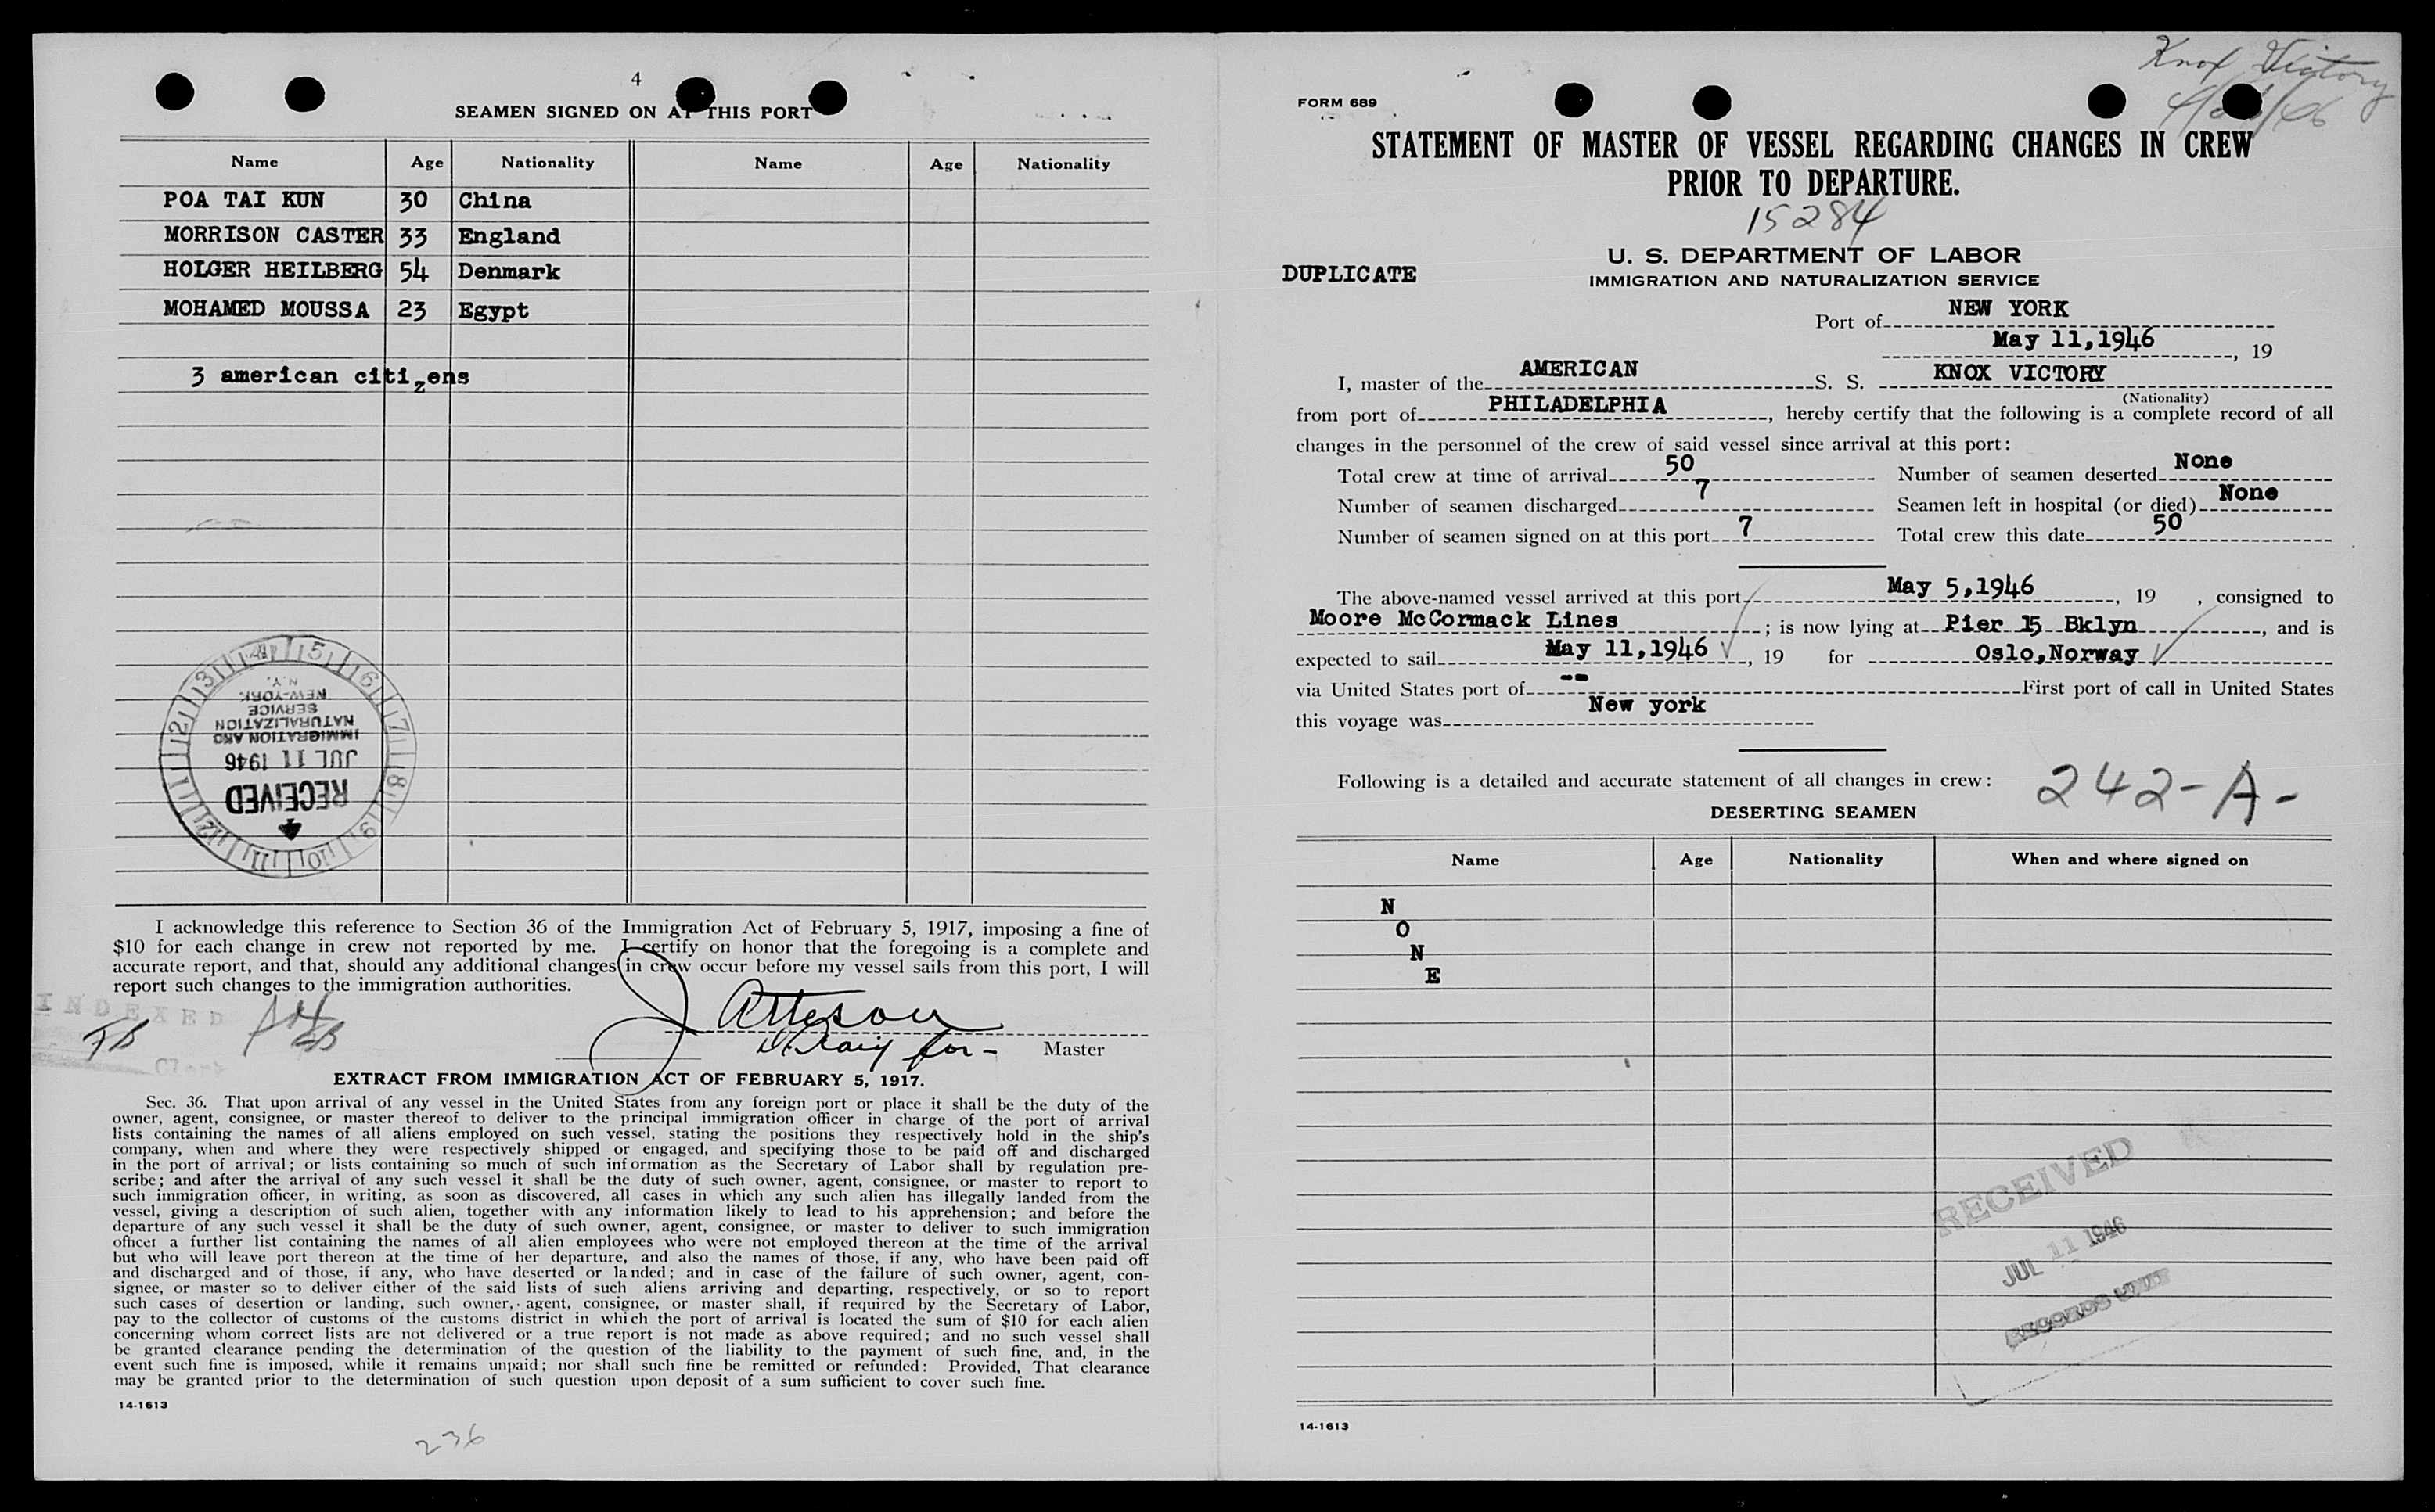 4
SEAMEN SIGNED ON AT THIS PORT
Name Age Nationality Name Age Nationality
POA TAI KUN 30 China
MORRISON CASTER 33 England
HOLGER HEILBERG 54 Denmark
MOHAMED MOUSSA 23 Egypt
3 american citizens
RECEIVED
JUL 11 1946
IMMIGRATION AND
NATURALIZATION
SERVICE
NEW YORK
N.Y.
I acknowledge this reference to Section 36 of the Immigration Act of February 5, 1917, imposing a fine of
$10 for each change in crew not reported by me. I certify on honor that the foregoing is a complete and
accurate report, and that, should any additional changes in crew occur before my vessel sails from this port, I will
report such changes to the immigration authorities.
INDEXED
Clerk
for - Master
EXTRACT FROM IMMIGRATION ACT OF FEBRUARY 5, 1917.
Sec. 36. That upon arrival of any vessel in the United States from any foreign port or place it shall be the duty of the
owner, agent, consignee, or master thereof to deliver to the principal immigration officer in charge of the port of arrival
lists containing the names of all aliens employed on such vessel, stating the positions they respectively hold in the ship's
company, when and where they were respectively shipped or engaged, and specifying those to be paid off and discharged
in the port of arrival; or lists containing so much of such information as the Secretary of Labor shall by regulation pre-
scribe; and after the arrival of any such vessel it shall be the duty of such owner, agent, consignee, or master to report to
such immigration officer, in writing, as soon as discovered, all cases in which any such alien has illegally landed from the
vessel, giving a description of such alien, together with any information likely to lead to his apprehension; and before the
departure of any such vessel it shall be the duty of such owner, agent, consignee, or master to deliver to such immigration
officer a further list containing the names of all alien employees who were not employed thereon at the time of the arrival
but who will leave port thereon at the time of her departure, and also the names of those, if any, who have been paid off
and discharged and of those, if any, who have deserted or landed; and in case of the failure of such owner, agent, con-
signee, or master so to deliver either of the said lists of such aliens arriving and departing, respectively, or so to report
such cases of desertion or landing, such owner, agent, consignee, or master shall, if required by the Secretary of Labor,
pay to the collector of customs of the customs district in which the port of arrival is located the sum of $10 for each alien
concerning whom correct lists are not delivered or a true report is not made as above required; and no such vessel shall
be granted clearance pending the determination of the question of the liability to the payment of such fine, and, in the
event such fine is imposed, while it remains unpaid; nor shall such fine be remitted or refunded: Provided, That clearance
may be granted prior to the determination of such question upon deposit of a sum sufficient to cover such fine.
14-1613
236
Knox Victory
FORM 689
STATEMENT OF MASTER OF VESSEL REGARDING CHANGES IN CREW
PRIOR TO DEPARTURE.
15284
U. S. DEPARTMENT OF LABOR
DUPLICATE
IMMIGRATION AND NATURALIZATION SERVICE
Port of NEW YORK
May 11,1946, 19
I, master of the AMERICAN S. S. KNOX VICTORY
(Nationality)
from port of PHILADELPHIA, hereby certify that the following is a complete record of all
changes in the personnel of the crew of said vessel since arrival at this port:
Total crew at time of arrival 50 Number of seamen deserted None
Number of seamen discharged 7 Seamen left in hospital (or died) None
Number of seamen signed on at this port 7 Total crew this date 50
The above-named vessel arrived at this port May 5,1946, 19 , consigned to
Moore McCormack Lines; is now lying at Pier 15 Bklyn, and is
expected to sail May 11,1946, 19 for Oslo,Norway
via United States port of -- First port of call in United States
this voyage was New york
Following is a detailed and accurate statement of all changes in crew:
242-A-
DESERTING SEAMEN
Name Age Nationality When and where signed on
N
O
N
E
RECEIVED
JUL 11 1946
RECORDS UNIT
14-1613